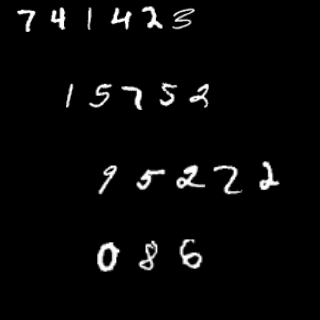 741423
15752
95272
086